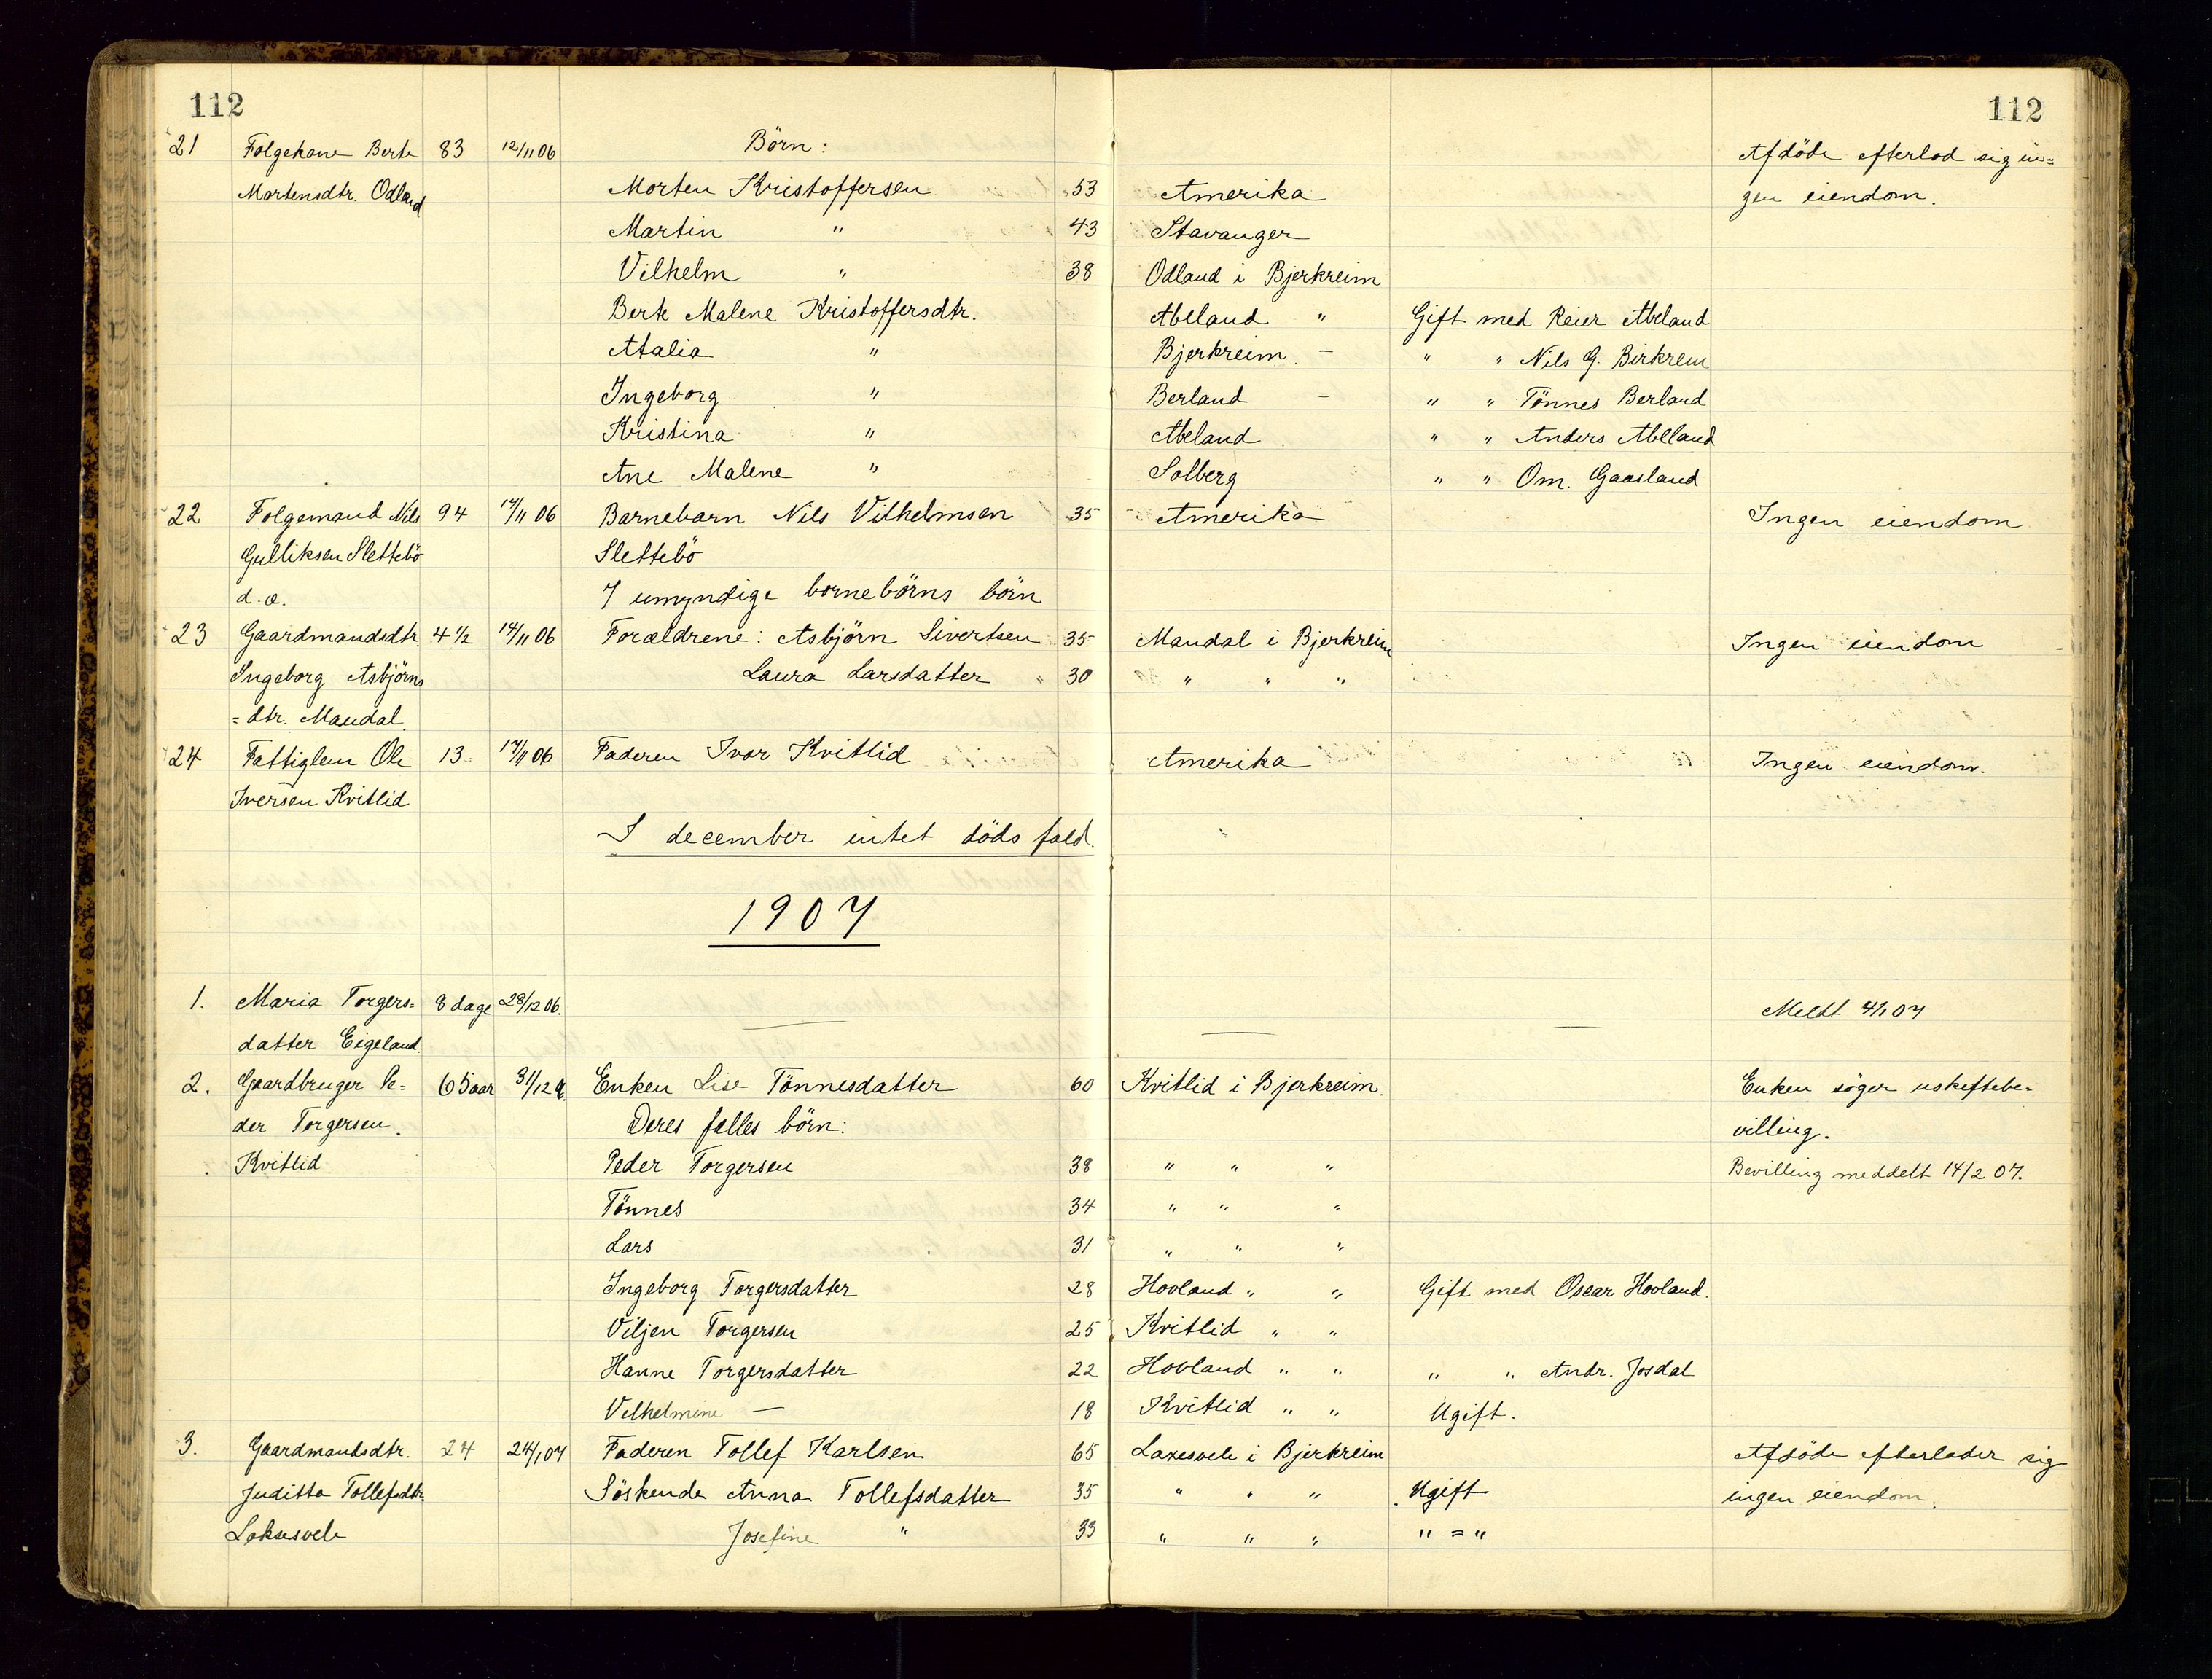 112 112
21 Folgekone Berte 83 12/11 06 Börn: Afdöde efterlod sig in=
Martensdtr. Odland Morten Kristoffersen 53 Amerika gen eiendom.
Martin " 43 Stavanger
Vilhelm " 38 Odland i Bjerkreim
Berte Malene Kristoffersdtr. Abeland " Gift med Reier Abeland
Atalia " Bjerkreim. - " " Nils G. Birkrem
Ingeborg " Berland - " " Tönnes Berland
Kristina " Abeland " " Anders Abelland
Ane Malene " Solberg " " Om. Gaasland
22 Folgemand Nils 94 14/11 06 Barnebarn Nils Vilhelmsen 35 Amerika Ingen eiendom
Gulliksen Slettebö Slettebö
d. æ. 7 umyndige barnebörns börn
23 Gaardmandsdtr. 4 1/2 14/11 06 Forældrene: Asbjörn Sivertsen 35 Maudal i Bjerkreim Ingen eiendom
Ingeborg Asbjörns Laura Larsdatter 30 " " "
=dtr. Maudal
24 Fattiglem Ole 13 17/11 06 Faderen Ivar Kvitlid Amerika Ingen eiendom.
Iversen Kvitlid
I december intet döds fald.
1907
1. Maria Torgers= 8 dage 28/12 06. — — — Meldt 4/1 07
datter Eigeland.
2. Gaardbruger Pe= 65 aar 31/12 Enken Lise Tönnesdatter 60 Kvitlid i Bjerkreim. Enken söger uskiftebe=
der Torgersen. Deres falles börn: villing.
Kvitlid Peder Torgersen 38 " " " Bevilling meddelt 14/2 07.
Tönnes 34 " " "
Lars 31 " " "
Ingeborg Torgersdatter 28 Hovland " " Gift med Oscar Hovland.
Viljen Torgersen 25 Kvitlid " "
Hanne Torgersdatter 22 Hovland " " " " Andr. Josdal
Vilhelmine — 18 Kvitlid " " Ugift.
3. Gaardmandsdtr. 24 24/1 07 Faderen Tollef Karlsen 65 Laxesvele i Bjerkreim Afdöde efterlader sig
Juditta Tollefsdtr. Söskende Anna Tollefsdatter 35 " " " Ugift ingen eiendom.
Laksesvele Josefine " 33 " " " " = "